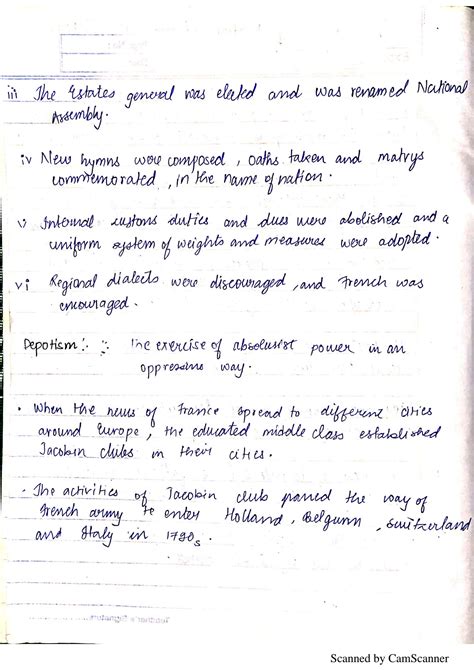 iii The Estates general was elected and was renamed National
Assembly.
iv New hymns were composed, oaths taken and matrys
commemorated, in the name of nation.
v Internal customs duties and dues were abolished and a
uniform system of weights and measures were adopted.
vi Regional dialects were discouraged, and French was
encouraged.
Depotism :- The exercise of absolusist power in an
oppressive way.
• When the news of France spread to different cities
around Europe, the educated middle class established
Jacobin clubs in their cities.
• The activities of Jacobin club paved the way of
French army to enter Holland, Belgium, Switzerland
and Italy in 1790s
Scanned by CamScanner